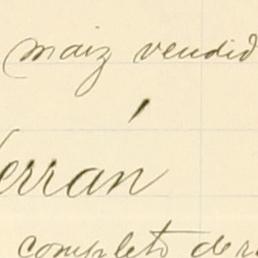 maiz vendid
errán
completo de